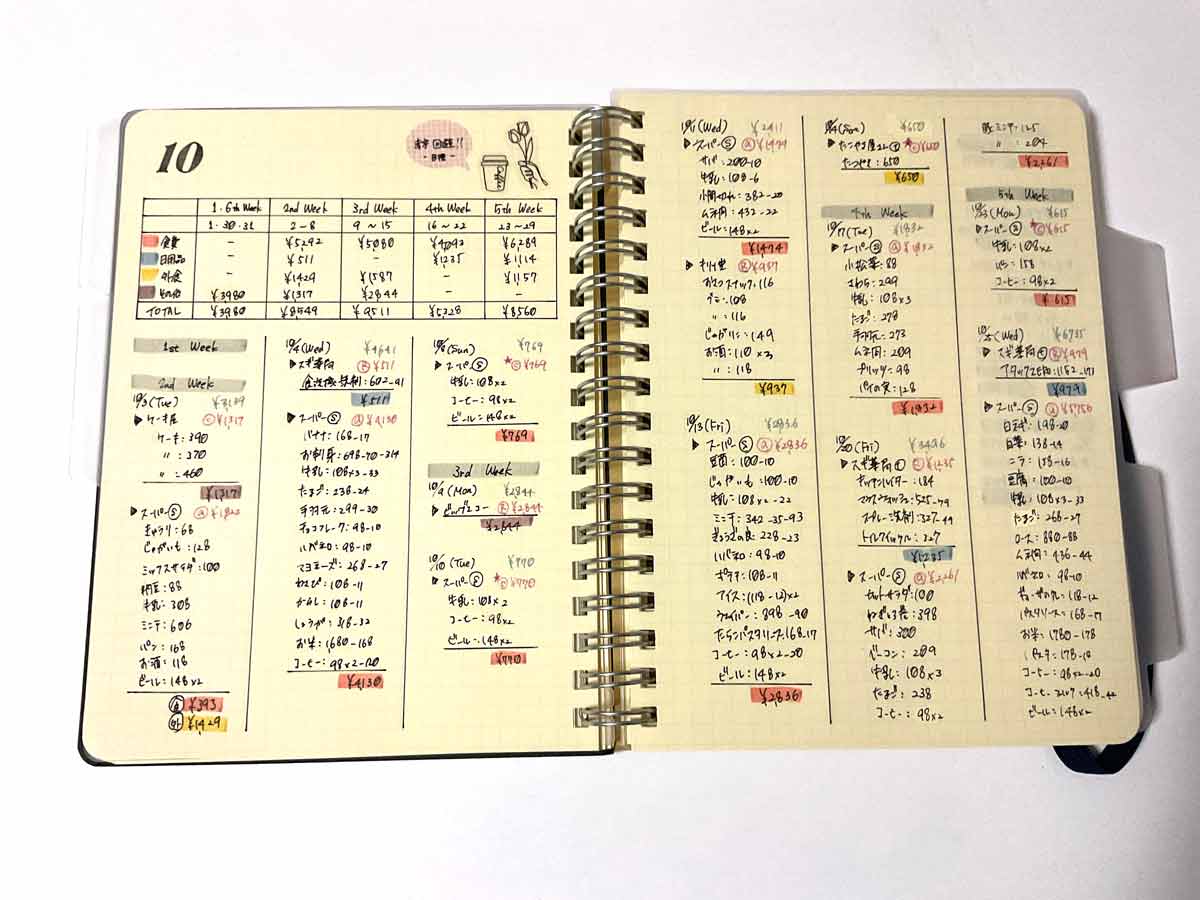 10
赤字回避!!
-目標-
Coffee
1・6th Week 2nd Week 3rd Week 4th Week 5th Week
1・30・31 2~8 9~15 16~22 23~29
食費 - ¥5292 ¥5080 ¥4093 ¥6289
日用品 - ¥511 - ¥1235 ¥1114
外食 - ¥1429 ¥1587 - ¥1157
その他 ¥3980 ¥1317 ¥2844 - -
TOTAL ¥3980 ¥8549 ¥9511 ¥5328 ¥8560
1st Week
2nd Week
10/3(Tue) ¥3139
▶ケーキ屋 ⓒ¥1317
ケーキ:390
〃:370
〃:460
¥1317
▶スーパーⓈ ⓐ¥1822
きゅうり:68
じゃがいも:128
ミックスサラダ:100
納豆:88
牛乳:305
ミンチ:606
パン:168
お酒:118
ビール:148×2
食 ¥393
外 ¥1429
10/4(Wed) ¥4641
▶スギ薬局 ¥511
食洗機洗剤:602-91
¥511
▶スーパーⓈ ⓐ¥4130
バナナ:168-17
お刺身:698-70-314
牛乳:108×3-33
たまご:238-24
手羽元:299-30
チョコフレーク:98-10
いパピロ:98-10
マヨネーズ:268-27
わさび:108-11
からし:108-11
しょうが:318-32
お米:1680-168
コーヒー:98×2-20
¥4130
10/8(Sun) ¥769
▶スーパーⓈ ★ⓒ¥769
牛乳:108×2
コーヒー:98×2
ビール:148×2
¥769
3rd Week
10/9(Mon) ¥2844
▶ビッグエコー ¥2844
¥2844
10/10(Tue) ¥770
▶スーパーⓈ ★¥770
牛乳:108×2
コーヒー:98×2
ビール:148×2
¥770
10/11(Wed) ¥2411
▶スーパーⓈ ⓐ¥1474
サバ:200-10
牛乳:108-6
小間切れ:382-20
ムネ肉:432-22
ビール:148×2
¥1474
▶キリン堂 ¥937
おさつスナック:116
グミ:108
〃:116
じゃがりこ:149
お酒:110×3
〃:118
¥937
10/13(Fri) ¥2836
▶スーパーⓈ ⓐ¥2836
豆腐:100-10
じゃがいも:100-10
牛乳:108×2-22
ミンチ:342-35-93
ぎょうざの皮:228-23
いパピロ:98-10
ポテチ:108-11
アイス:(118-12)×2
ウェイパー:898-90
たらこパスタソース:168-17
コーヒー:98×2-20
ビール:148×2
¥2836
10/14(Sun) ¥650
▶たこやき屋 ★ⓒ¥650
たこやき:650
¥650
4th Week
10/17(Tue) ¥1832
▶スーパーⓈ ⓐ¥1832
小松菜:88
さわら:299
牛乳:108×3
たまご:278
手羽元:273
ムネ肉:209
プリッツ:98
パイの実:128
¥1832
10/20(Fri) ¥3496
▶スギ薬局 ¥1235
キッチンハイター:184
マウスウォッシュ:525-79
スプレー洗剤:327-49
トイレクイックル:327
¥1235
▶スーパーⓈ ⓐ¥2261
カットサラダ:100
ねぎ×3巻:398
サバ:300
ベーコン:209
牛乳:108×3
たまご:238
コーヒー:98×2
豚ミンチ:125
〃:204
¥2261
5th Week
10/23(Mon) ¥615
▶スーパーⓈ ★ⓒ¥615
牛乳:108×2
パン:158
コーヒー:98×2
¥615
10/25(Wed) ¥6735
▶スギ薬局 ¥979
アタックZERO:1152-173
¥979
▶スーパーⓈ ⓐ¥5756
白ネギ:198-20
白菜:138-14
ニラ:158-16
豆腐:100-10
牛乳:108×3-33
たまご:268-27
ロース:880-88
ムネ肉:436-44
いパピロ:98-10
ギョーザのタレ:118-12
パスタソース:168-17
お米:1780-178
パスタ:178-18
コーヒー:98×2-20
ビール:148×2